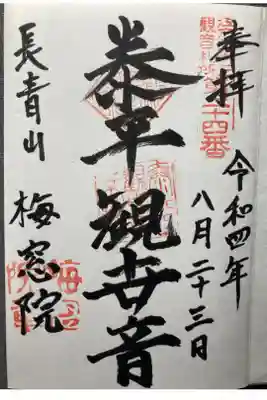 奉拝
二十四番
令和四年
八月二十三日
泰平觀世音
長青山 梅窓院